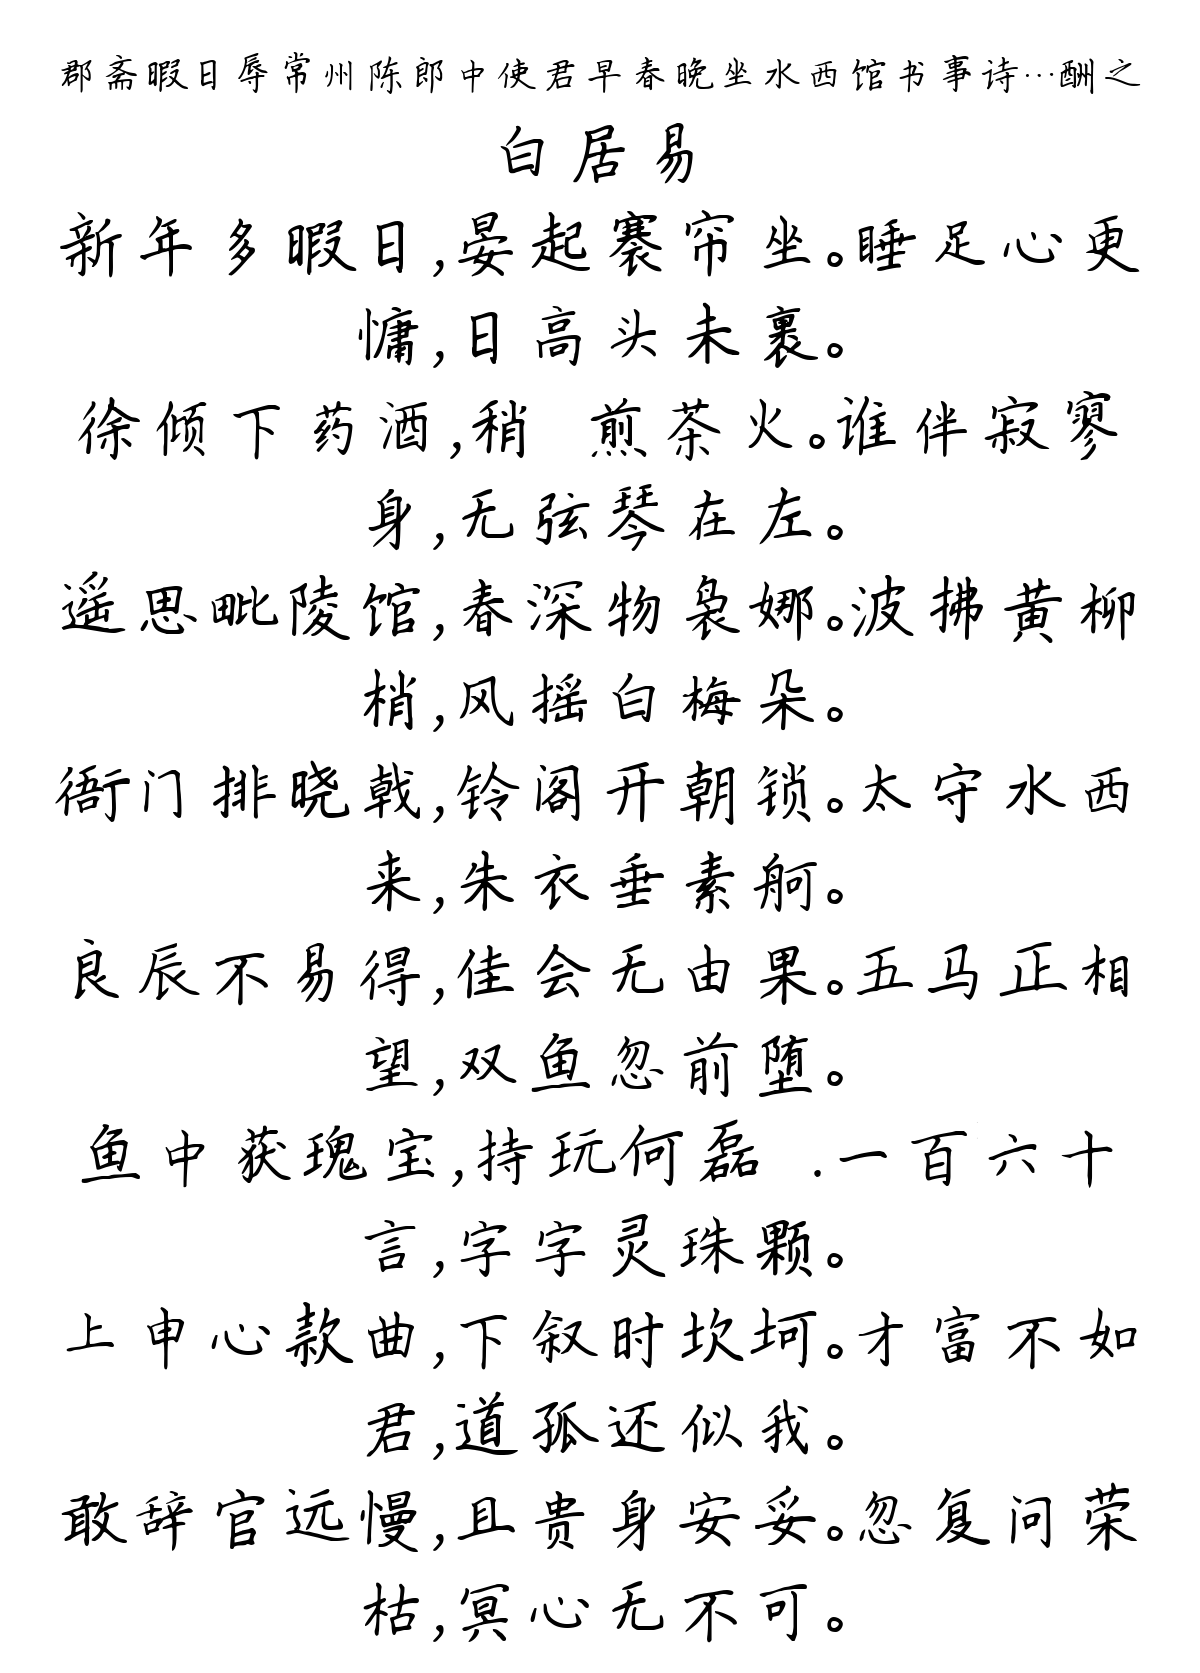 郡斋暇日辱常州陈郎中使君早春晚坐水西馆书事诗…酬之
白居易
新年多暇日,晏起褰帘坐。睡足心更
慵,日高头未裹。
徐倾下药酒,稍 煎茶火。谁伴寂寥
身,无弦琴在左。
遥思毗陵馆,春深物袅娜。波拂黄柳
梢,风摇白梅朵。
衙门排晓戟,铃阁开朝锁。太守水西
来,朱衣垂素舸。
良辰不易得,佳会无由果。五马正相
望,双鱼忽前堕。
鱼中获瑰宝,持玩何磊 .一百六十
言,字字灵珠颗。
上申心款曲,下叙时坎坷。才富不如
君,道孤还似我。
敢辞官远慢,且贵身安妥。忽复问荣
枯,冥心无不可。